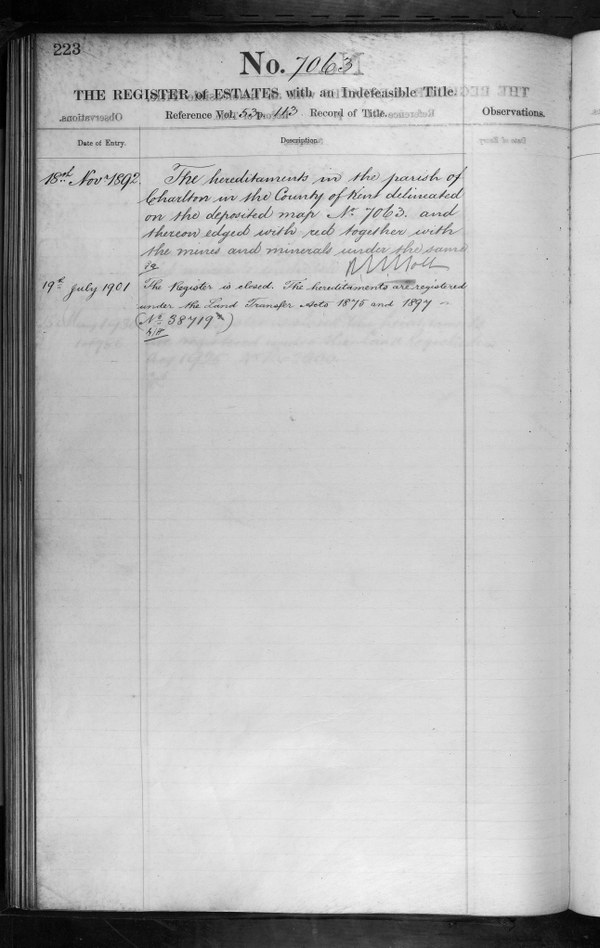 223
No. 7063
THE REGISTER of ESTATES with an Indefeasible Title.
Reference Vol. 53 p. 113 Record of Title.
Observations.
Date of Entry.
Description.
18th Novr 1892
The hereditaments in the parish of
Charlton in the County of Kent delineated
on the deposited map No. 7063. and
thereon edged with red together with
the mines and minerals under the same
19th July 1901
The Register is closed. The hereditaments are registered
under the Land Transfer Acts 1875 and 1897 –
(No. 38719)